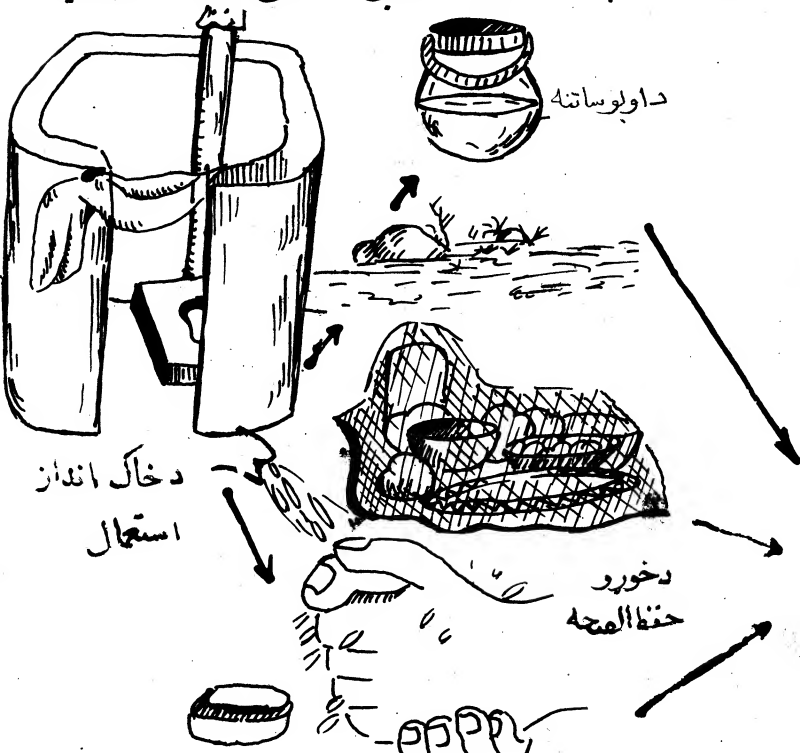 د اوبو ساتنه
د خاک انداز
استعمال
د خوړو
حفظ الصحه